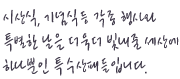 시산식, 기념식등 각종 행사나
특별한 날을 더욱더 빛내줄 세상에
하나뿐인 특수상패들입니다.